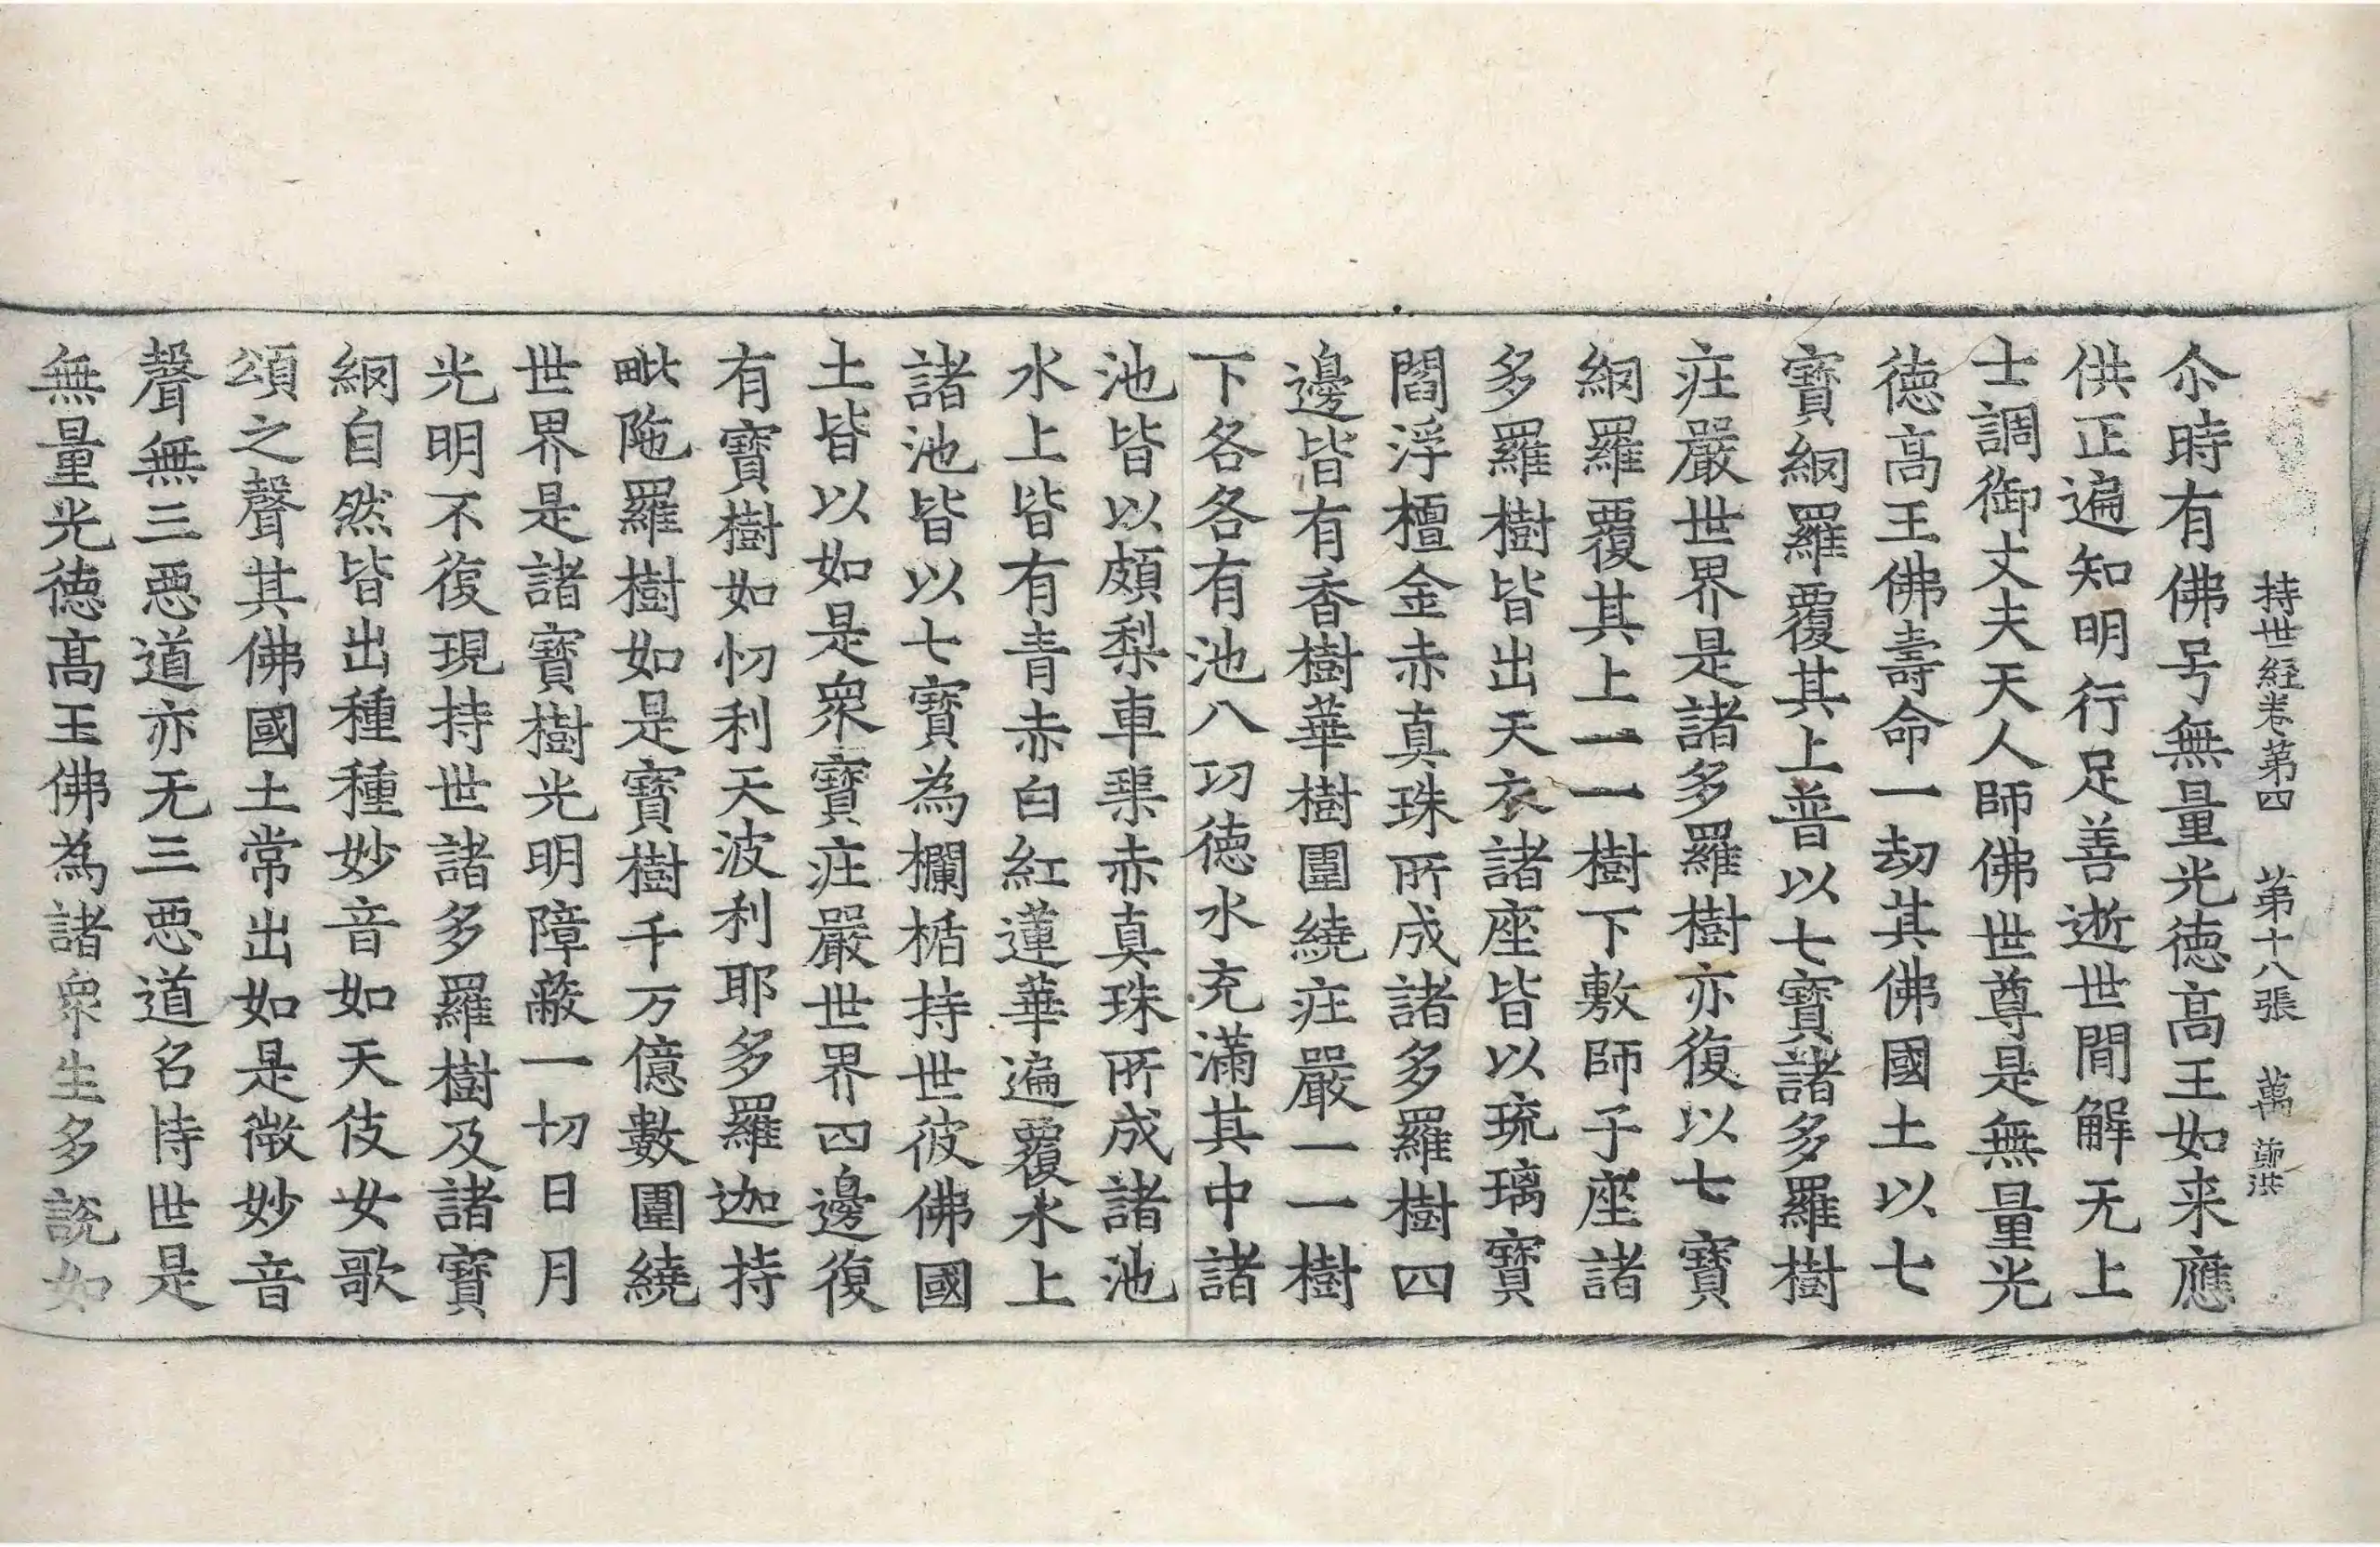 持世経卷苐四 苐十八張 萬
尒時有佛号無量光徳髙王如来應
供正遍知明行足善逝世間解无上
士調御丈夫天人師佛世尊是無量光
徳髙王佛壽命一劫其佛國土以七
寶網羅覆其上普以七寶諸多羅樹
莊嚴世界是諸多羅樹亦復以七寶
網羅覆其上一一樹下敷師子座諸
多羅樹皆出天衣諸座皆以琉璃寶
閻浮檀金赤真珠所成諸多羅樹四
邊皆有香樹華樹圍繞莊嚴一一樹
下各各有池八功徳水充滿其中諸
池皆以頗梨車璖赤真珠所成諸池
水上皆有青赤白紅蓮華遍覆水上
諸池皆以七寶為欄楯持世彼佛國
土皆以如是衆寶莊嚴世界四邊復
有寶樹如忉利天波利耶多羅迦持
毗陁羅樹如是寶樹千万億數圍繞
世界是諸寶樹光明障蔽一切日月
光明不復現持世諸多羅樹及諸寶
網自然皆出種種妙音如天伎女歌
頌之聲其佛國土常出如是微妙音
聲無三惡道亦无三惡道名持世是
無量光徳髙王佛為諸衆生多説如